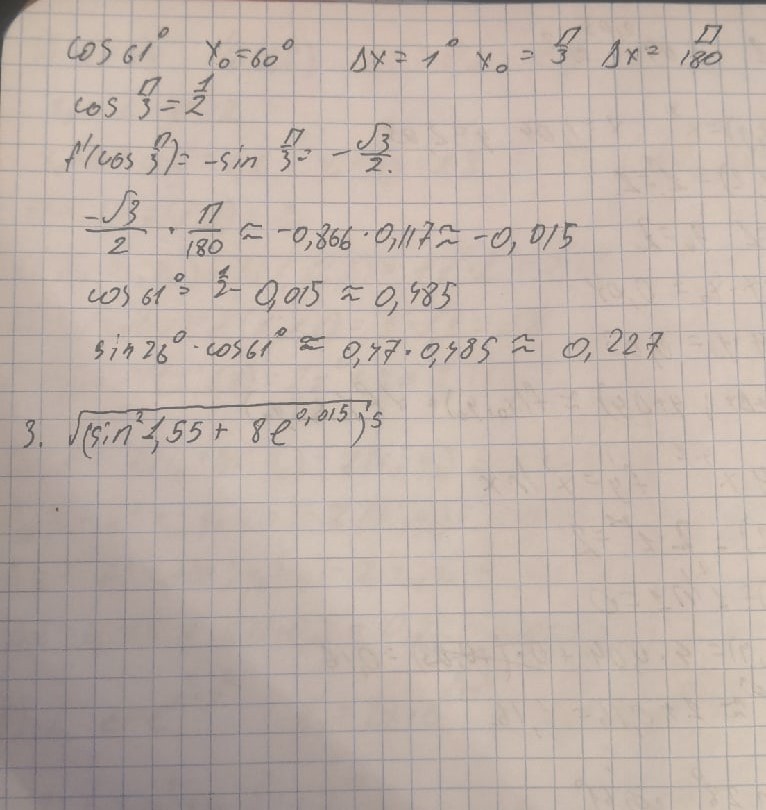 cos 61° x₀ = 60° Δx = 1° x₀ = π/3 Δx = π/180
cos π/3 = 1/2
f'(cos π/3) = -sin π/3 = -√3/2.
-√3/2 · π/180 ≈ -0,866 · 0,117 ≈ -0,015
cos 61° = 1/2 - 0,015 ≈ 0,485
sin 28° · cos 61° ≈ 0,47 · 0,485 ≈ 0,227
3. √(sin² 1,55 + 8e^0,015)^5